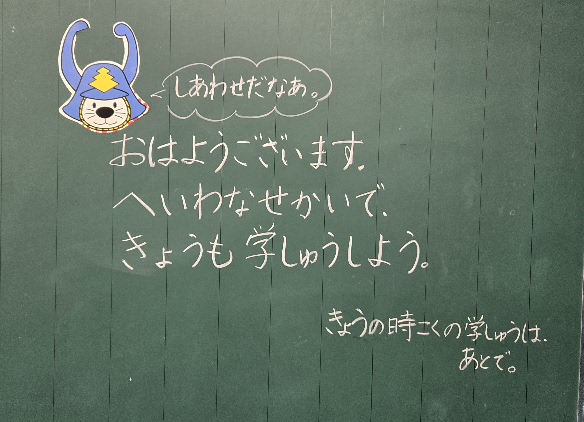 しあわせだなあ。
おはようございます。
へいわなせかいで、
きょうも学しゅうしよう。
きょうの時こくの学しゅうは、
あとで。